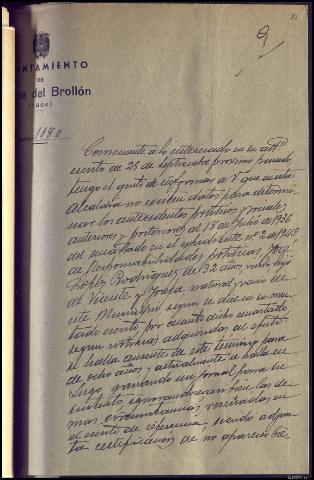 AYUNTAMIENTO
DE
Puebla del Brollón
(LUGO)
1180
9
Consecuente a lo interesado en su att.º
escrito de 25 de septiembre próximo pasado,
tengo el gusto de informar a V. que en esta
Alcaldía no existen datos para determi-
nar los antecedentes políticos y sociales
anteriores y posteriores al 18 de Julio de 1936
del encartado en el expediente nº 2 de 1943
de Responsabilidades políticas, José
López Rodríguez de 32 años, hijo
de Vicente y Josefa natural y vecino de
este Municipio según se dice en su men-
tado escrito, por cuanto dicho encartado,
según noticias adquiridas al efecto
se halla ausente de este término para
de ocho años y actualmente se halla en
Lugo, ganando un jornal para su
sustento ignorándose también las de-
mas circunstancias reseñadas en
el escrito de referencia, siendo adjun-
ta certificación de no aparecer bie-